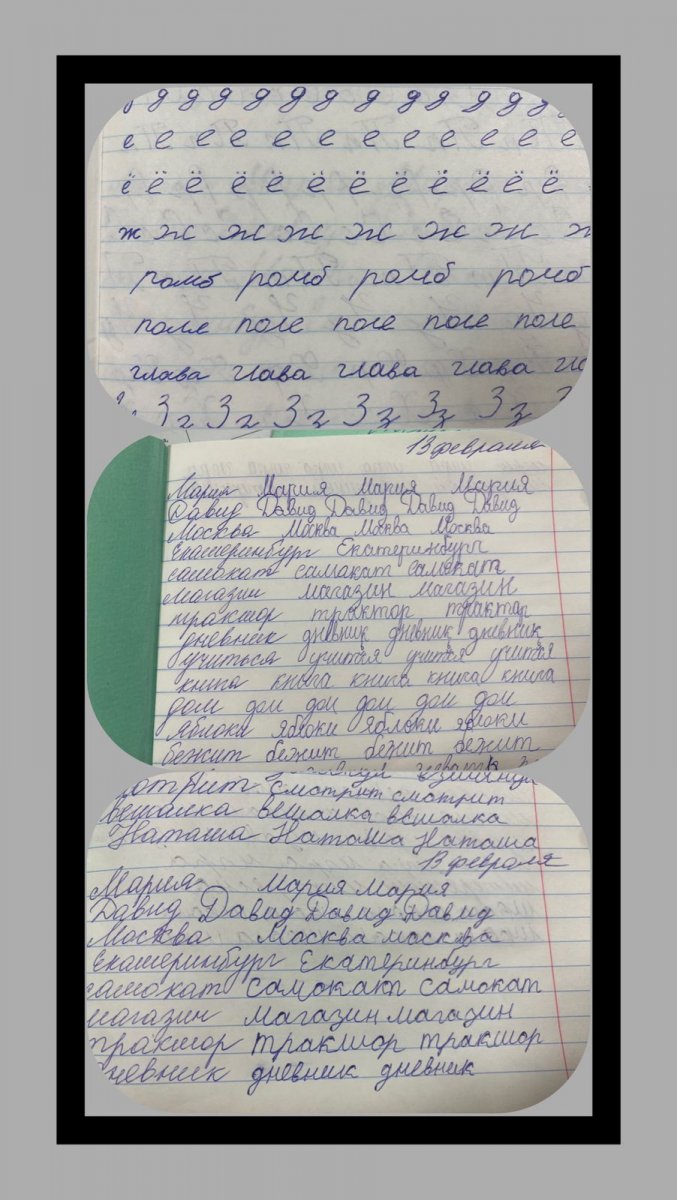 д д д д д д д д д д д д
е е е е е е е е е е е е
ё ё ё ё ё ё ё ё ё ё ё ё
ж ж ж ж ж ж ж ж
ромб ромб ромб ромб
поле поле поле поле поле
глава глава глава глава
З з З з З з З з З з З з
13 февраля
Мария Мария Мария Мария
Давид Давид Давид Давид Давид
Москва Москва Москва Москва
Екатеринбург Екатеринбург
самокат самокат самокат
магазин магазин магазин
трактор трактор трактор
дневник дневник дневник дневник
учиться учиться учиться учиться
книга книга книга книга книга
дом дом дом дом дом дом
яблоки яблоки яблоки яблоки
бежит бежит бежит бежит
смотрит смотрит
вешалка вешалка вешалка
Наташа Наташа Наташа
13 февраля
Мария Мария Мария
Давид Давид Давид Давид
Москва Москва москва
Екатеринбург Екатеринбург
самокат самокат самокат
магазин магазин магазин
трактор трактор трактор
дневник дневник дневник